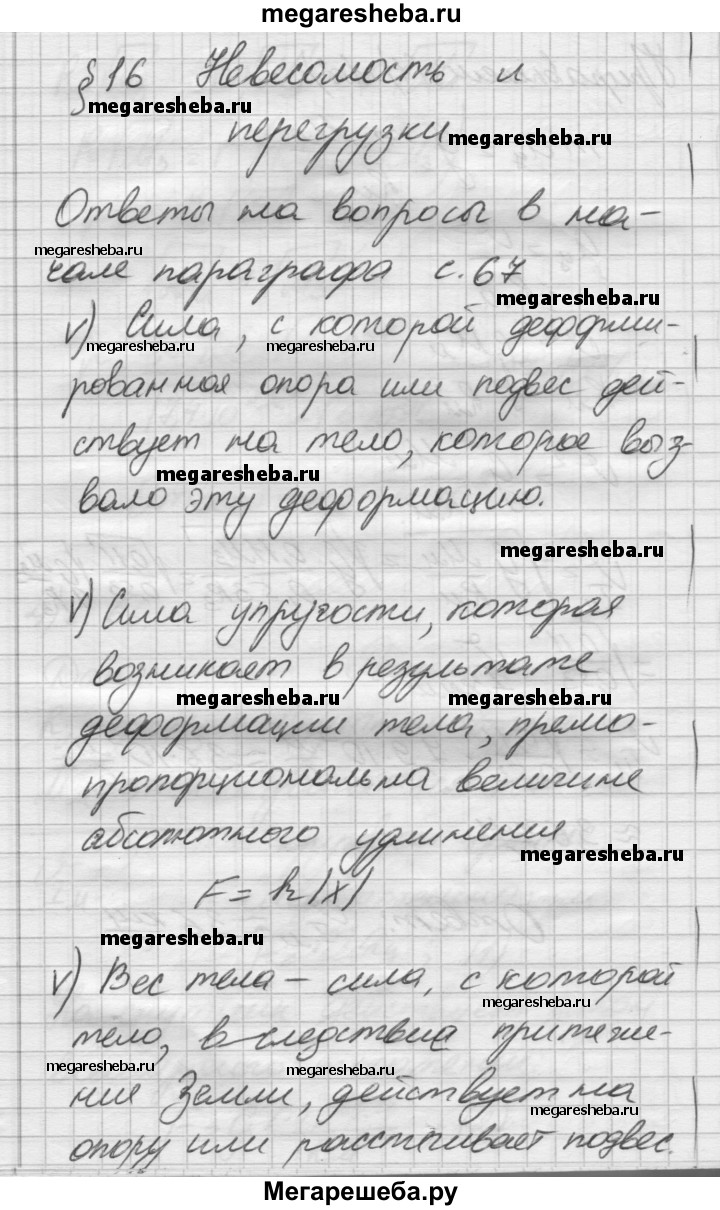 megaresheba.ru
§16 Невесомость и
megaresheba.ru
перегрузки
megaresheba.ru
Ответы на вопросы в на-
megaresheba.ru
чале параграфа с.67
megaresheba.ru
V) Сила, с которой деформи-
megaresheba.ru megaresheba.ru
рованная опора или подвес дей-
ствует на тело, которое выз-
megaresheba.ru
вало эту деформацию.
megaresheba.ru
V) Сила упругости, которая
возникает в результате
megaresheba.ru megaresheba.ru
деформации тела, прямо-
пропорциональна величине
абсолютного удлинения
megaresheba.ru
F = k|x|
megaresheba.ru
V) Вес тела – сила, с которой
megaresheba.ru
тело, вследствие притяже-
megaresheba.ru megaresheba.ru
ния Земли, действует на
megaresheba.ru
опору или расстягивает подвес.
Мегарешеба.ру